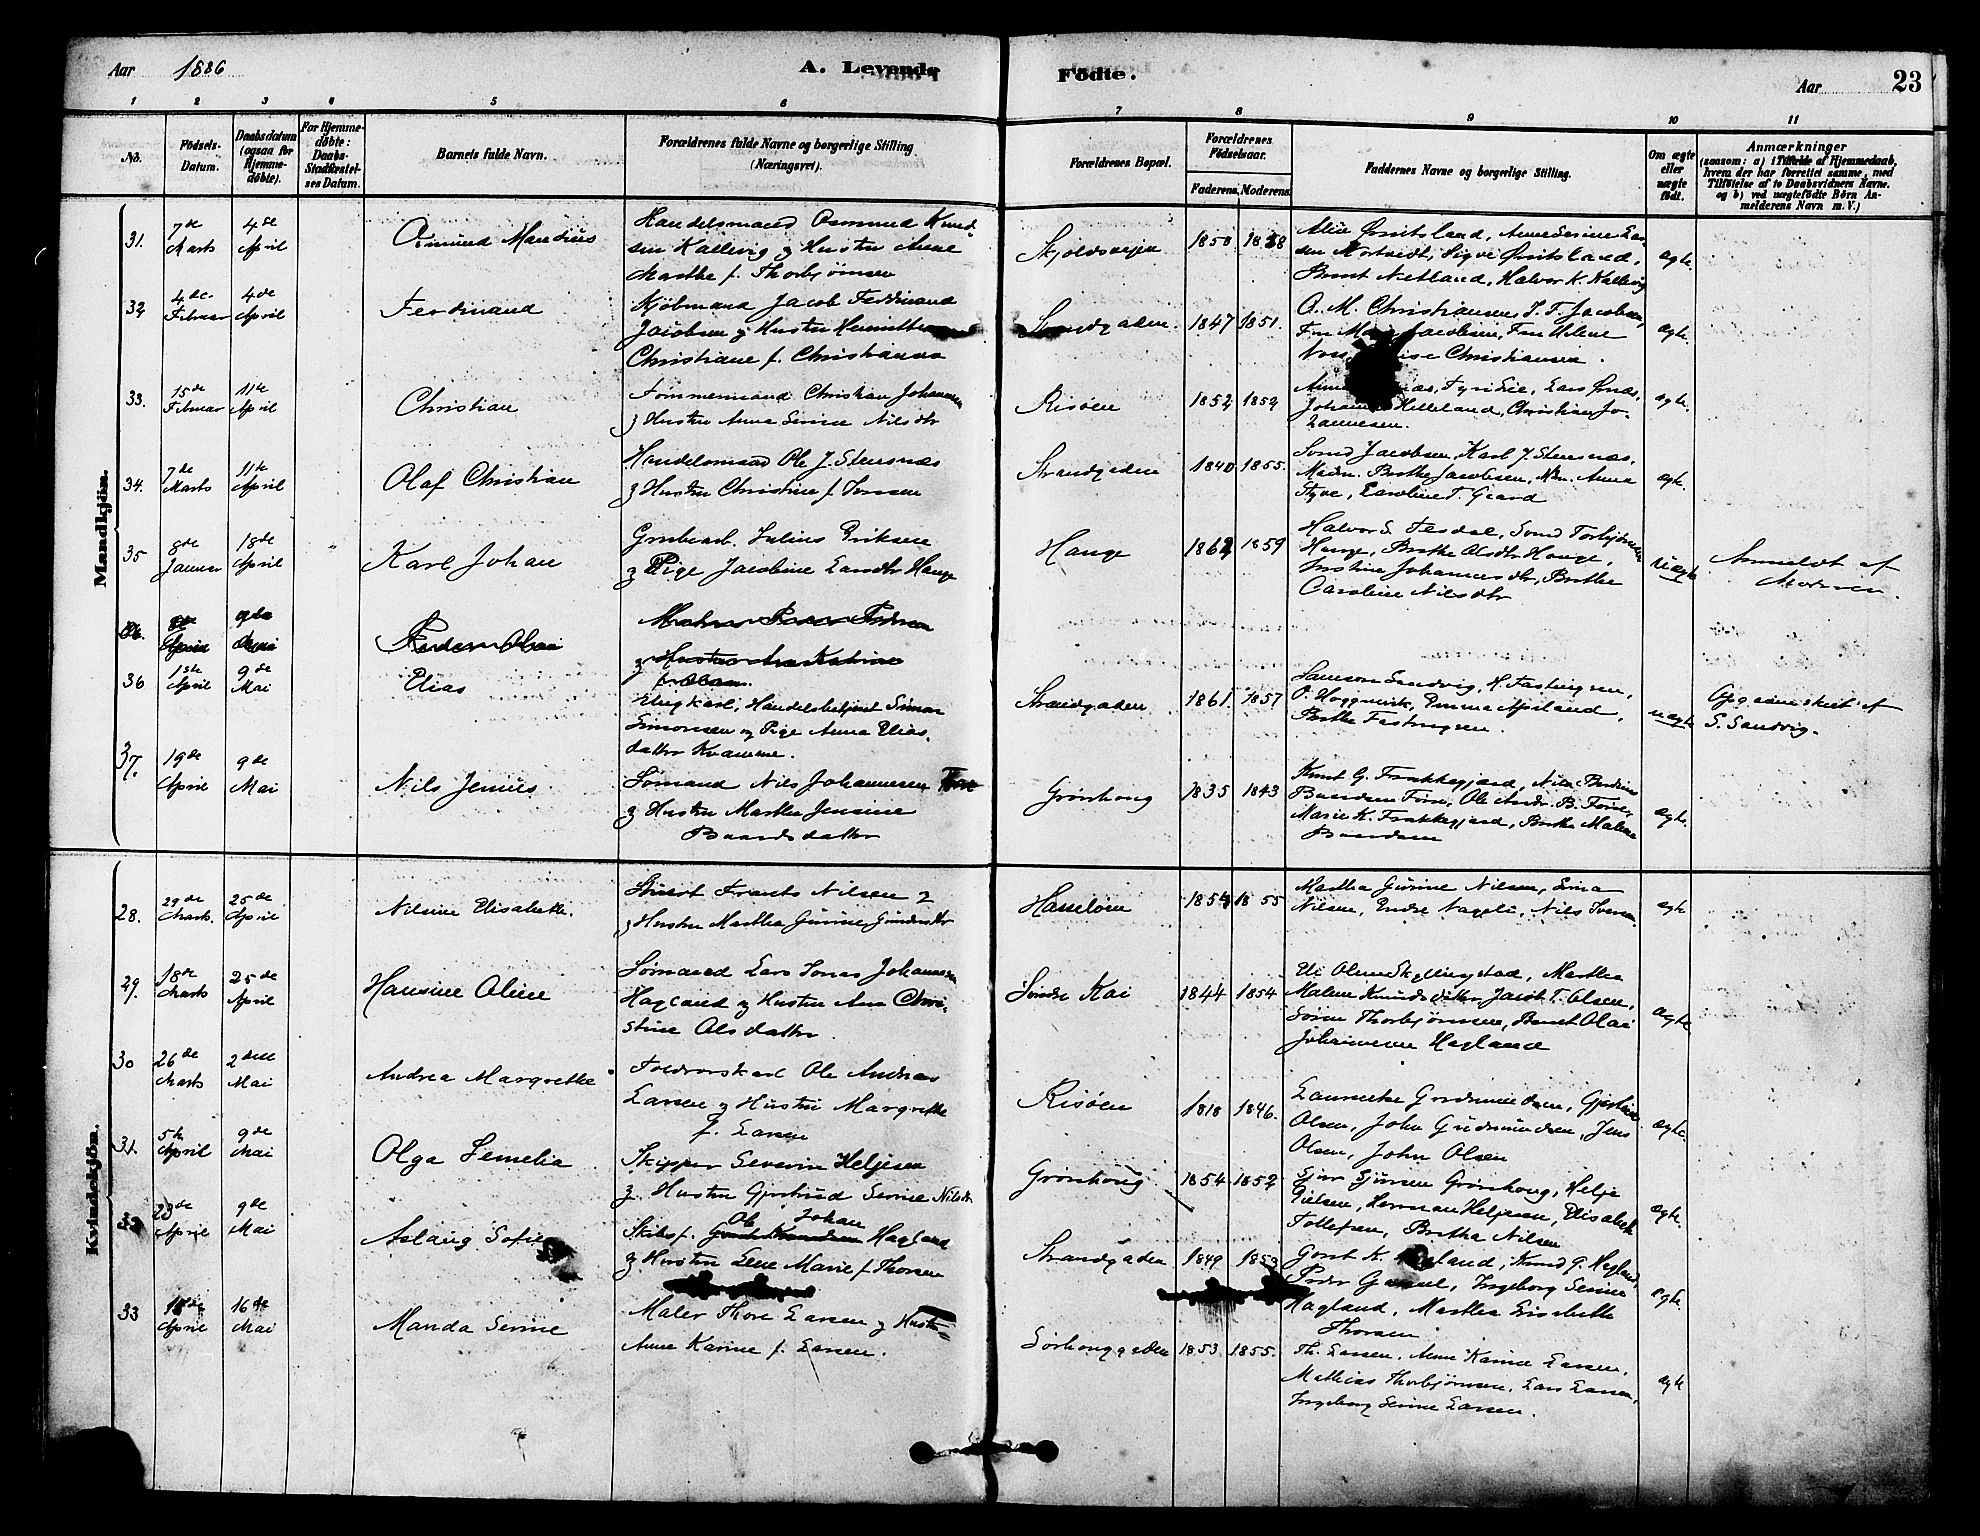 Aar 1886
A. Levende
Födte.
Aar
23
1 2 3 4 5 6 7 8 9 10 11
No.
Fødsels-Datum.
Daabsdatum (ogsaa for Hjemme-døbte).
For Hjemme-døbte: Daabs-Stadfæstel-ses Datum.
Barnets fulde Navn.
Forældrenes fulde Navne og borgerlige Stilling (Næringsvei).
Forældrenes Bopæl.
Forældrenes Fødselsaar.
Faderens. Moderens.
Faddernes Navne og borgerlige Stilling.
Om ægte eller uægte født.
Anmærkninger
(saasom: a) i Tilfælde af Hjemmedaab, hvem der har forrettet samme, med Tilføielse af to Daabsvidners Navne, og b) ved uægtefødte Børn An-melderens Navn m.V.)
Mandkjön.
31.
7de Marts
4de April
Osmund Mandius
Handelsmand Osmund Knud-
sen Kallevig og Hustru Anne
Marthe f. Thorbjørnsen
Skjoldavejen
1858
Sigve Østisland,
Halvor K. Kallevig
ægte.
32
4de Februar
4de April
Ferdinand
Kjøbmand Jacob Ferdinand
Jacobsen og Hustru
Christiane f. Christiansen
Strandgaden.
1847 1851.
O. M. Christiansen, J. F. Jacobsen,
Fru Helene
Christiansen.
ægte.
33.
15de Februar
11te April
Christian
Tømmermand Christian Johannesen
og Hustru Anna Serine Nilsdtr
Risøen
1852 1852
Lars Ønæs,
Helleland, Christian Jo-
hannesen.
ægte.
34.
7de Marts
11te April
Olaf Christian
Handelsmand Ole J. Stensnæs
og Hustru Christine f. Jensen
Strandgaden
1840 1855.
Svend Jacobsen, Karl J. Stensnæs,
Madm. Berthe Jacobsen, Mdm. Anna
Tyve, Caroline T. Gaard
ægte.
35
8de Januar
18de April
Karl Johan
Grubearb. Julius Eriksen
og Pige Jacobine Larsdtr Hauge
Hauge
1862 1859
Halvor S. Tesdal, Svend Torbjørnsen
Hauge, Berthe Olsdtr Hauge,
Johannesdtr, Berthe
Caroline Nilsdtr
Uægte
Anmeldt af
Moderen.
36.
April
9de
Peder Olai
og Hustru Ane Katrine
f. Olsen.
36
1ste April
9de Mai
Elias
Ungkarl, Handelsbetjent Simon
Simonsen og Pige Anna Elias-
datter Kvamme.
Strandgaden
1861 1857
Samson Sandvig, H. Fastingsen,
Berthe Fastingsen.
uægte
Opgedenskeit af
S. Sandvig.
37.
19de April
9de Mai
Nils Jenius
Sømand Nils Johannesen
og Hustru Marthe Jensine
Baardsdatter
Grønhaug
1835 1843
Knut G. Frakkegjerd, Nils
Baardsen Førre, Ole Andr. B. Førre,
Marie K. Frakkegjerd, Berthe Malene
Baardsen
ægte.
Kvindekjön.
28.
29de Marts.
25de April
Nilsine Elisabeth.
Frants Nilsen
og Hustru Marthe Gurine Gundersdtr
Hasseløen
1854 1855
Martha Gurine Nilsen, Sina
Nilsen, Endre Vageli, Nils Iversen
ægte
29.
18de Marts
25de April
Hansine Oline
Sømand Lars Jonas Johannesen
Hagland og Hustru Ane Chri-
stine Olsdatter.
Søndre Kai
1844 1854
Martha
Malene Knudsdatter, Jacob T. Olsen,
Søren Thorbjørnsen, Bernt Olai
Johannesen Hagland
ægte
30
26de Marts
2den Mai
Andrea Margrethe
Toldrorskarl Ole Andreas
Larsen og Hustru Margrethe
f. Larsen
Risøen
1818 1846.
Lauritze Gudmundsen,
Olsen, John Gudmundsen, Jens
Olsen, John Olsen
ægte.
31.
5te April
9de Mai
Olga Semelia
Skipper Severin Heljesen
og Hustru Gjertrud Serine Nilsdtr
Grønhoug
1854 1852
Grønhoug, Helje
Herman Heljesen, Elisabeth
Tollefsen, Bertha Nilsen
ægte.
32
April
9de Mai
Aslaug Sofie
Ole Johan
Skibsf. Hagland
og Hustru Lene Marie f. Thorsen
Strandgaden
1849 1853
Gort K. Hagland, Knud G. Hagland,
Ingeborg Serine
Hagland, Martha Lisebeth
Thorsen
ægte.
33
18de April
16de Mai
Manda Serine
Maler Thore Larsen og Hustru
Anne Karine f. Larsen.
Sørhouggaden
1853. 1855.
Th. Larsen, Anne Karine Larsen,
Mathias Thorbjørnsen, Lars Larsen,
Ingeborg Serine Larsen.
ægte